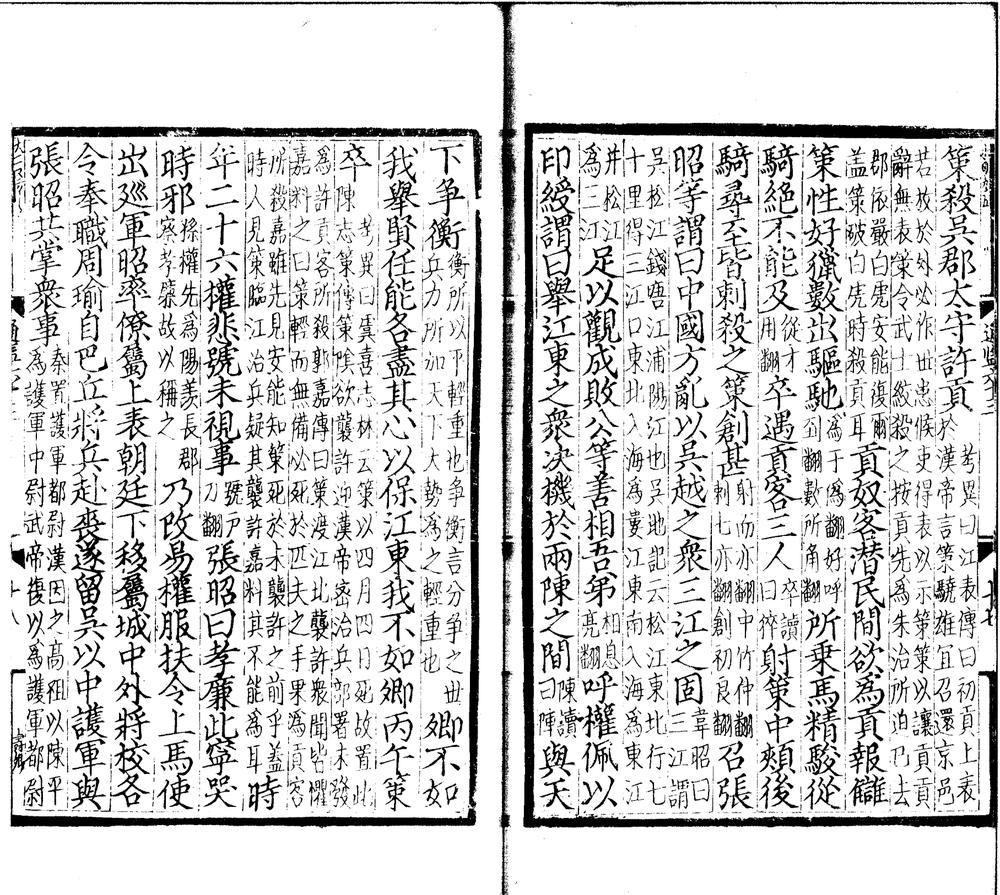 策殺吳郡太守許貢考異曰江表傳曰初貢上表於漢帝言策驍雄宜召還京邑
若放於外必作世患候吏得表以示策策以讓貢貢辭無表策令武士絞殺之按貢先為朱治所迫已去
郡依嚴白虎安能復爾盖策破白虎時殺貢耳貢奴客潛民間欲為貢報讎
策性好獵數出驅馳為于偽翻好呼到翻數所角翻所乘馬精駿從
騎絕不能及從才用翻卒遇貢客三人卒讀曰猝射策中頰後
騎尋至皆刺殺之策創甚射而亦翻中竹仲翻刺七亦翻創初良翻召張
昭等謂曰中國方亂以吳越之衆三江之固韋昭曰三江謂
吳松江錢唐江浦陽江也吳地記云松江東北行七十里得三江口東北入海為婁江東南入海為東江
并松江為三江足以觀成敗公等善相吾弟相息亮翻呼權佩以
印綬謂曰舉江東之衆决機於兩陳之間陳讀曰陣與天
下争衡衡所以平輕重也争衡言分争之世兵力所加天下大勢為之輕重也卿不如
我舉賢任能各盡其心以保江東我不如卿丙午策
卒考異曰虞喜志林云策以四月四日死故置此陳志策傳策陰欲襲許迎漢帝密治兵部署未發
為許貢客所殺郭嘉傳曰策渡江北襲許衆聞皆懼嘉料之曰策輕而無備必死於匹夫之手果為貢客
所殺嘉雖先見安能知策死於未襲許之前乎盖時人見策臨江治兵疑其襲許嘉料其不能為耳時
年二十六權悲號未視事號戶刀翻張昭曰孝廉此寧哭
時邪孫權先為陽羨長郡察孝廉故以稱之乃改易權服扶令上馬使
出廵軍昭率僚屬上表朝廷下移屬城中外將校各
令奉職周瑜自巴丘將兵赴喪遂留吳以中護軍與
張昭共掌衆事秦置護軍都尉漢因之高祖以陳平為護軍中尉武帝復以為護軍都尉